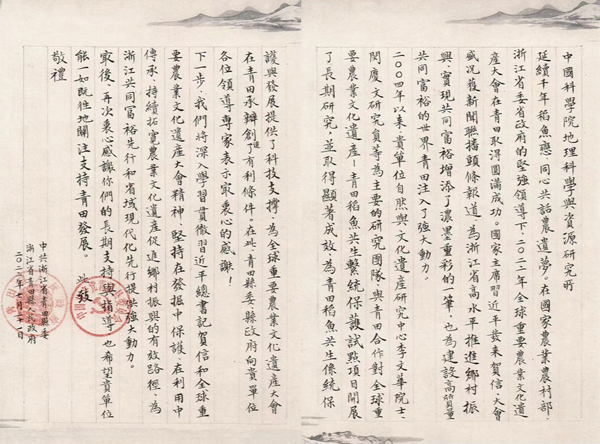 中國科學院地理科學與資源研究所
延續千年稻魚戀,同心共話農遺夢。在國家農業農村部、
浙江省委省政府的堅強領導下,二〇二二年全球重要農業文化遺
產大會在青田取得圓滿成功。國家主席習近平發來賀信,大會
盛况獲新聞聯播頭條報道,為浙江省高水平推進鄉村振
興、實現共同富裕增添了濃墨重彩的一筆,也為建設高質量
共同富裕的世界青田注入了強大動力。
二〇〇四年以來,貴單位自然與文化遺產研究中心李文華院士、
閔慶文研究員等為主要的研究團隊,與青田合作對全球重
要農業文化遺產—青田稻魚共生繫統保護試點項目開展
了長期研究,並取得顯著成效,為青田稻魚共生係統保
護與發展提供了科技支撐,為全球重要農業文化遺產大會
在青田承辦創造了有利條件。在此,青田縣委縣政府向貴單位
各位領導專家表示最衷心的感謝!
下一步,我們將深入學習貫徹習近平總書記賀信和全球重
要農業文化遺產大會精神,堅持在發掘中保護、在利用中
傳承,持續拓寬農業文化遺產促進鄉村振興的有效路徑,為
浙江共同富裕先行和省域現代化先行提供強大動力。
最後,再次衷心感謝你們的長期支持與指導,也希望貴單位
能一如既往地關注支持青田發展。 此致
敬禮
中共浙江省青田縣委
浙江省青田縣人民政府
二〇二二年七月二十一日